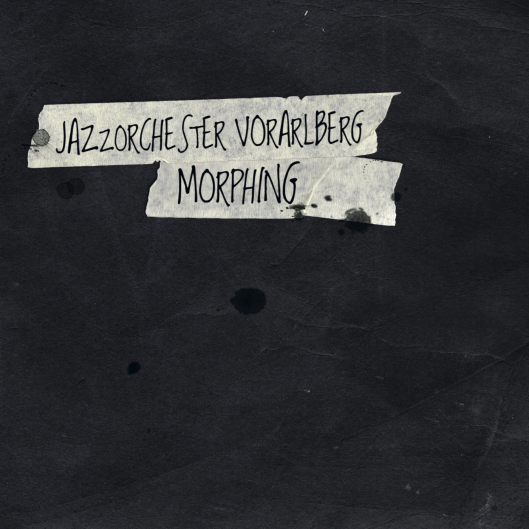 JAZZORCHESTER VORARLBERG
MORPHING